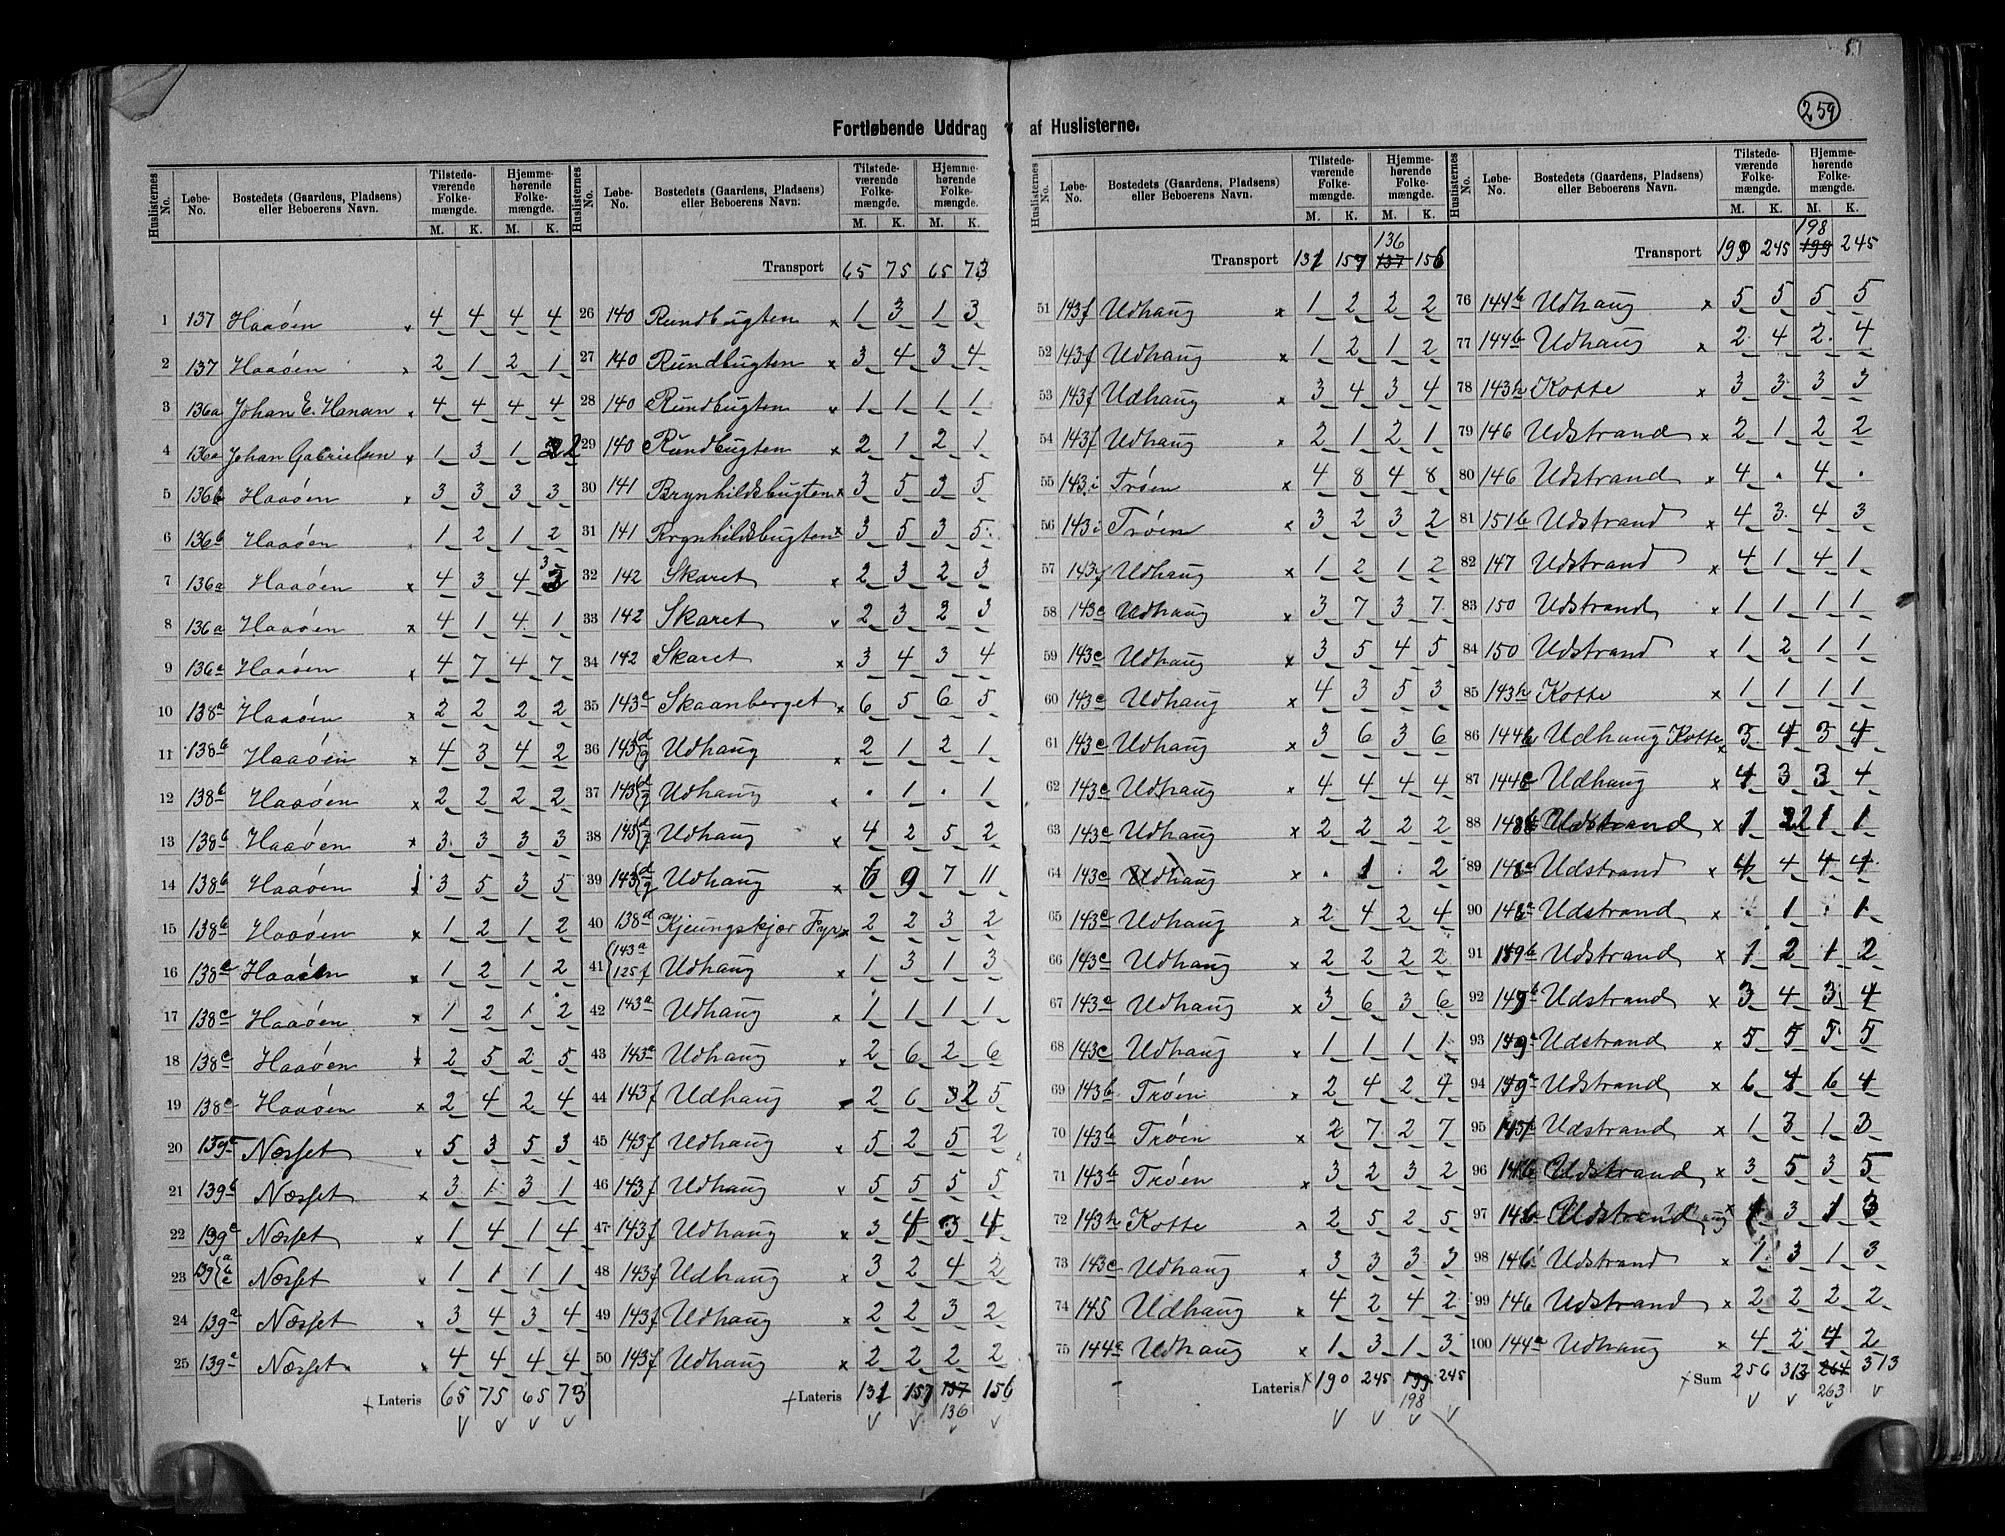 259
Fortløbende Uddrag af Huslisterne.
Huslisternes No. | Løbe-No. | Bostedets (Gaardens, Pladsens) eller Beboerens Navn. | Tilstede-værende Folke-mængde. M. K. | Hjemme-hørende Folke-mængde. M. K.
1 137 Haaøen x 4 4 4 4
2 137 Haaøen x 2 1 2 1
3 136a Johan E. Hansen x 4 4 4 4
4 136a Johan Gabrielsen x 1 3 1 2
5 136b Haaøen x 3 3 3 3
6 136b Haaøen 1 2 1 2
7 136a Haaøen x 4 3 4 3
8 136a Haaøen x 4 1 4 1
9 136a Haaøen x 4 7 4 7
10 138a Haaøen x 2 2 2 2
11 138b Haaøen x 4 3 4 2
12 138b Haaøen x 2 2 2 2
13 138b Haaøen x 3 3 3 3
14 138b Haaøen 3 5 3 5
15 138b Haaøen x 1 2 1 2
16 138c Haaøen x 1 2 1 2
17 138c Haaøen x 1 2 1 2
18 138c Haaøen 2 5 2 5
19 138c Haaøen x 2 4 2 4
20 139a Næsset x 5 3 5 3
21 139b Næsset x 3 1 3 1
22 139c Næsset x 1 4 1 4
23 139 a b c Næsset x 1 1 1 1
24 139a Næsset x 3 4 3 4
25 139a Næsset x 4 4 4 4
Lateris 65 75 65 73
Huslisternes No. | Løbe-No. | Bostedets (Gaardens, Pladsens) eller Beboerens Navn. | Tilstede-værende Folke-mængde. M. K. | Hjemme-hørende Folke-mængde. M. K.
Transport 65 75 65 73
26 140 Rundbugten x 1 3 1 3
27 140 Rundbugten x 3 4 3 4
28 140 Rundbugten x 1 1 1 1
29 140 Rundbugten x 2 1 2 1
30 141 Brynhildsbugten x 3 5 3 5
31 141 Brynhildsbugten x 3 5 3 5
32 142 Skaret x 2 3 2 3
33 142 Skaret 2 3 2 3
34 142 Skaret x 3 4 3 4
35 143c Skaanberget x 6 5 6 5
36 143 d g Udhaug x 2 1 2 1
37 143 d g Udhaug x . 1 . 1
38 143 d g Udhaug x 4 2 5 2
39 143 d g Udhaug x 6 9 7 11
40 138d Kjeungskjær Fyr x 2 2 3 2
41 143a 125f Udhaug x 1 3 1 3
42 143a Udhaug x 1 1 1 1
43 143a Udhaug x 2 6 2 6
44 143f Udhaug x 2 6 2 5
45 143f Udhaug x 5 2 5 2
46 143f Udhaug 5 5 5 5
47 143f Udhaug x 3 4 3 4
48 143f Udhaug x 3 2 4 2
49 143f Udhaug x 2 2 3 2
50 143f Udhaug x 2 2 2 2
Lateris 131 157 137 156
136
Huslisternes No. | Løbe-No. | Bostedets (Gaardens, Pladsens) eller Beboerens Navn. | Tilstede-værende Folke-mængde. M. K. | Hjemme-hørende Folke-mængde. M. K.
136
Transport 131 157 137 156
51 143f Udhaug x 1 2 2 2
52 143f Udhaug x 1 2 1 2
53 143f Udhaug x 3 4 3 4
54 143f Udhaug x 2 1 2 1
55 143i Trøen x 4 8 4 8
56 143i Trøen x 3 2 3 2
57 143f Udhaug x 1 2 1 2
58 143c Udhaug x 3 7 3 7
59 143c Udhaug x 3 5 4 5
60 143c Udhaug x 4 3 5 3
61 143c Udhaug x 3 6 3 6
62 143c Udhaug x 4 4 4 4
63 143c Udhaug x 2 2 2 2
64 143c Udhaug x . 1 . 2
65 143c Udhaug x 2 4 2 4
66 143c Udhaug x 2 2 2 2
67 143c Udhaug x 3 6 3 6
68 143c Udhaug x 1 1 1 1
69 143b Trøen x 2 4 2 4
70 143b Trøen x 2 7 2 7
71 143b Trøen x 3 2 3 2
72 143h Kotte x 2 5 2 5
73 143c Udhaug x 3 3 3 3
74 145 Udhaug x 4 2 4 2
75 144c Udhaug x 1 3 1 3
Lateris x 190 245 199 245
198
Huslisternes No. | Løbe-No. | Bostedets (Gaardens, Pladsens) eller Beboerens Navn. | Tilstede-værende Folke-mængde. M. K. | Hjemme-hørende Folke-mængde. M. K.
198
Transport 190 245 199 245
76 144b Udhaug x 5 5 5 5
77 144b Udhaug x 2 4 2 4
78 143h Kotte x 3 3 3 3
79 146 Udstrand x 2 1 2 2
80 146 Udstrand x 4 . 4 .
81 151b Udstrand x 4 3 4 3
82 147 Udstrand x 4 1 4 1
83 150 Udstrand x 1 1 1 1
84 150 Udstrand x 1 2 1 1
85 143h Kotte x 1 1 1 1
86 144b Udhaug Kotte x 3 4 3 4
87 144c Udhaug x 4 3 3 4
88 148b Udstrand x 1 2 1 1
89 148a Udstrand x 4 4 4 4
90 148a Udstrand x . 1 . 1
91 149b Udstrand x 1 2 1 2
92 149b Udstrand x 3 4 3 4
93 149a Udstrand x 5 5 5 5
94 149a Udstrand x 6 4 6 4
95 Udstrand x 1 3 1 3
96 146 Udstrand x 3 5 3 5
97 146 Udstrand x 1 3 1 3
98 146 Udstrand x 1 3 1 3
99 146 Udstrand x 2 2 2 2
100 144a Udhaug x 4 2 4 2
Sum 256 313 264 313
263